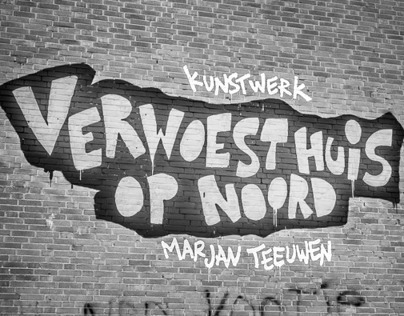 KUNSTWERK
VERWOEST HUiS
OP NOORD
MARJAN TEEUWEN